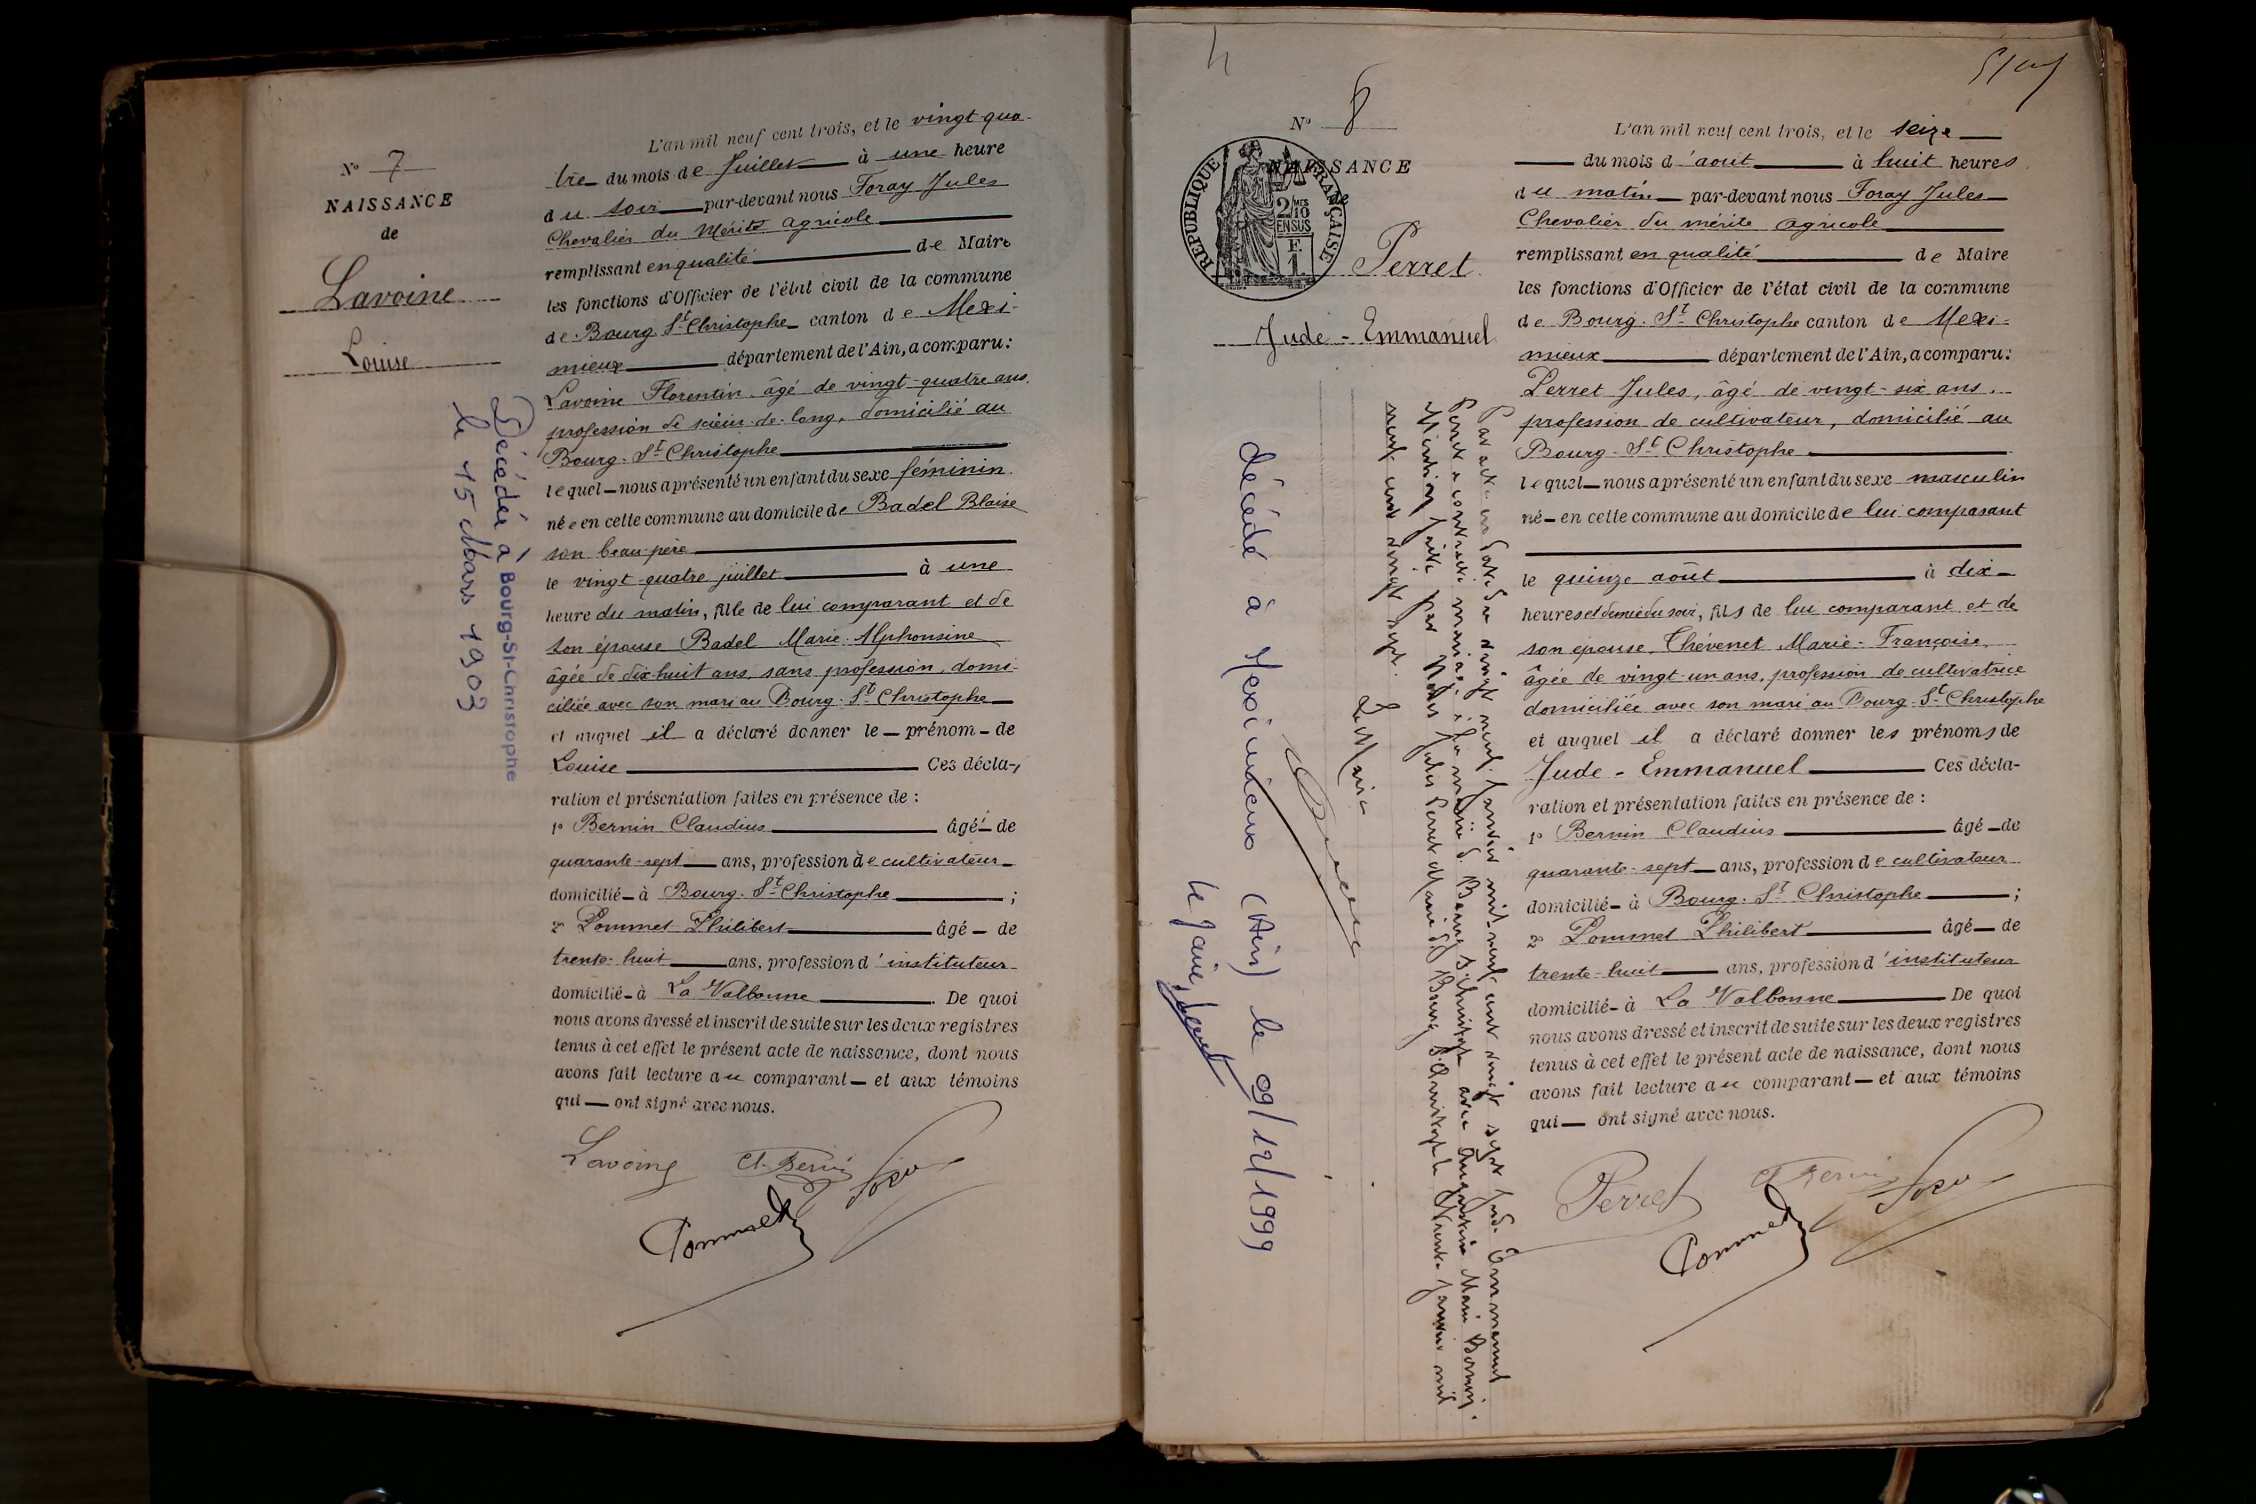 N° 7
NAISSANCE
de
Lavoine
Louise
Décédée à Bourg-St-Christophe
le 15 Mars 1903
L'an mil neuf cent trois, et le vingt-qua-
tre du mois de Juillet à une heure
du soir par-devant nous Foray Jules
Chevalier du Mérite agricole
remplissant en qualité de Maire
les fonctions d'Officier de l'état civil de la commune
de Bourg St Christophe canton de Mexi-
mieux département de l'Ain, a comparu :
Lavoine Florentin âgé de vingt-quatre ans
profession de scieur-de-long, domicilié au
Bourg-St Christophe
lequel nous a présenté un enfant du sexe féminin
née en cette commune au domicile de Badel Blaise
son beau-père
le vingt-quatre juillet à une
heure du matin, fille de lui comparant et de
son épouse Badel Marie-Alphonsine
âgée de dix-huit ans, sans profession, domi-
ciliée avec son mari au Bourg-St Christophe
et auquel il a déclaré donner le prénom de
Louise Ces décla-
ration et présentation faites en présence de :
1° Bernin Claudius âgé de
quarante-sept ans, profession de cultivateur
domicilié à Bourg-St Christophe ;
2° Pommet Philibert âgé de
trente-huit ans, profession d'instituteur
domicilié à La Valbonne . De quoi
nous avons dressé et inscrit de suite sur les deux registres
tenus à cet effet le présent acte de naissance, dont nous
avons fait lecture au comparant et aux témoins
qui ont signé avec nous.
Lavoine Cl. Bernin Foray
Pommet
4
N° 8
NAISSANCE
de
RÉPUBLIQUE FRANÇAISE
2/10 MES
EN SUS
F.
1
Perret
Jude-Emmanuel
Par acte en date du vingt neuf janvier mil neuf cent vingt sept Jude Emmanuel
Perret a contracté mariage à la mairie de Bourg St Christophe avec Augustine Marie Bernin.
Mention faite par nous Jules Perret Maire de Bourg St Christophe le trente janvier mil
neuf cent vingt sept. Le Maire
Perret
décédé à Meximieux (Ain) le 09/12/1999
Le Maire,
L'an mil neuf cent trois, et le seize
du mois d'aout à huit heures
du matin par-devant nous Foray Jules
Chevalier du mérite agricole
remplissant en qualité de Maire
les fonctions d'Officier de l'état civil de la commune
de Bourg-St Christophe canton de Mexi-
mieux département de l'Ain, a comparu :
Perret Jules, âgé de vingt-six ans,
profession de cultivateur, domicilié au
Bourg-St Christophe
lequel nous a présenté un enfant du sexe masculin
né en cette commune au domicile de lui comparant
le quinze août à dix
heures et demie du soir, fils de lui comparant et de
son épouse, Thévenet Marie-Françoise,
âgée de vingt-un ans, profession de cultivatrice
domiciliée avec son mari au Bourg-St Christophe
et auquel il a déclaré donner les prénoms de
Jude-Emmanuel Ces décla-
ration et présentation faites en présence de :
1° Bernin Claudius âgé de
quarante-sept ans, profession de cultivateur
domicilié à Bourg-St Christophe ;
2° Pommet Philibert âgé de
trente-huit ans, profession d'instituteur
domicilié à La Valbonne De quoi
nous avons dressé et inscrit de suite sur les deux registres
tenus à cet effet le présent acte de naissance, dont nous
avons fait lecture au comparant et aux témoins
qui ont signé avec nous.
Perret Cl Bernin Foray
Pommet